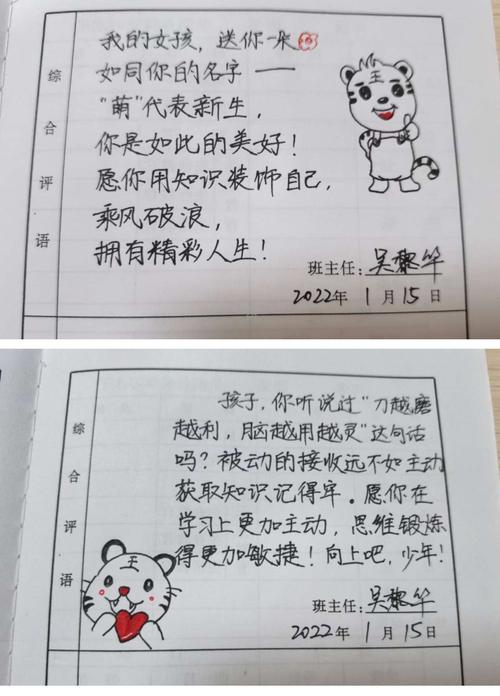 我的女孩，送你一朵
如同你的名字——
“萌”代表新生，
你是如此的美好！
愿你用知识装饰自己，
乘风破浪，
拥有精彩人生！
综合评语
王
班主任：吴黎华
2022年 1月15日
孩子，你听说过“刀越磨
越利，脑越用越灵”这句话
吗？被动的接收远不如主动
获取知识记得牢。愿你在
学习上更加主动，思维锻炼
得更加敏捷！向上吧，少年！
综合评语
王
班主任：吴黎华
2022年 1月15日